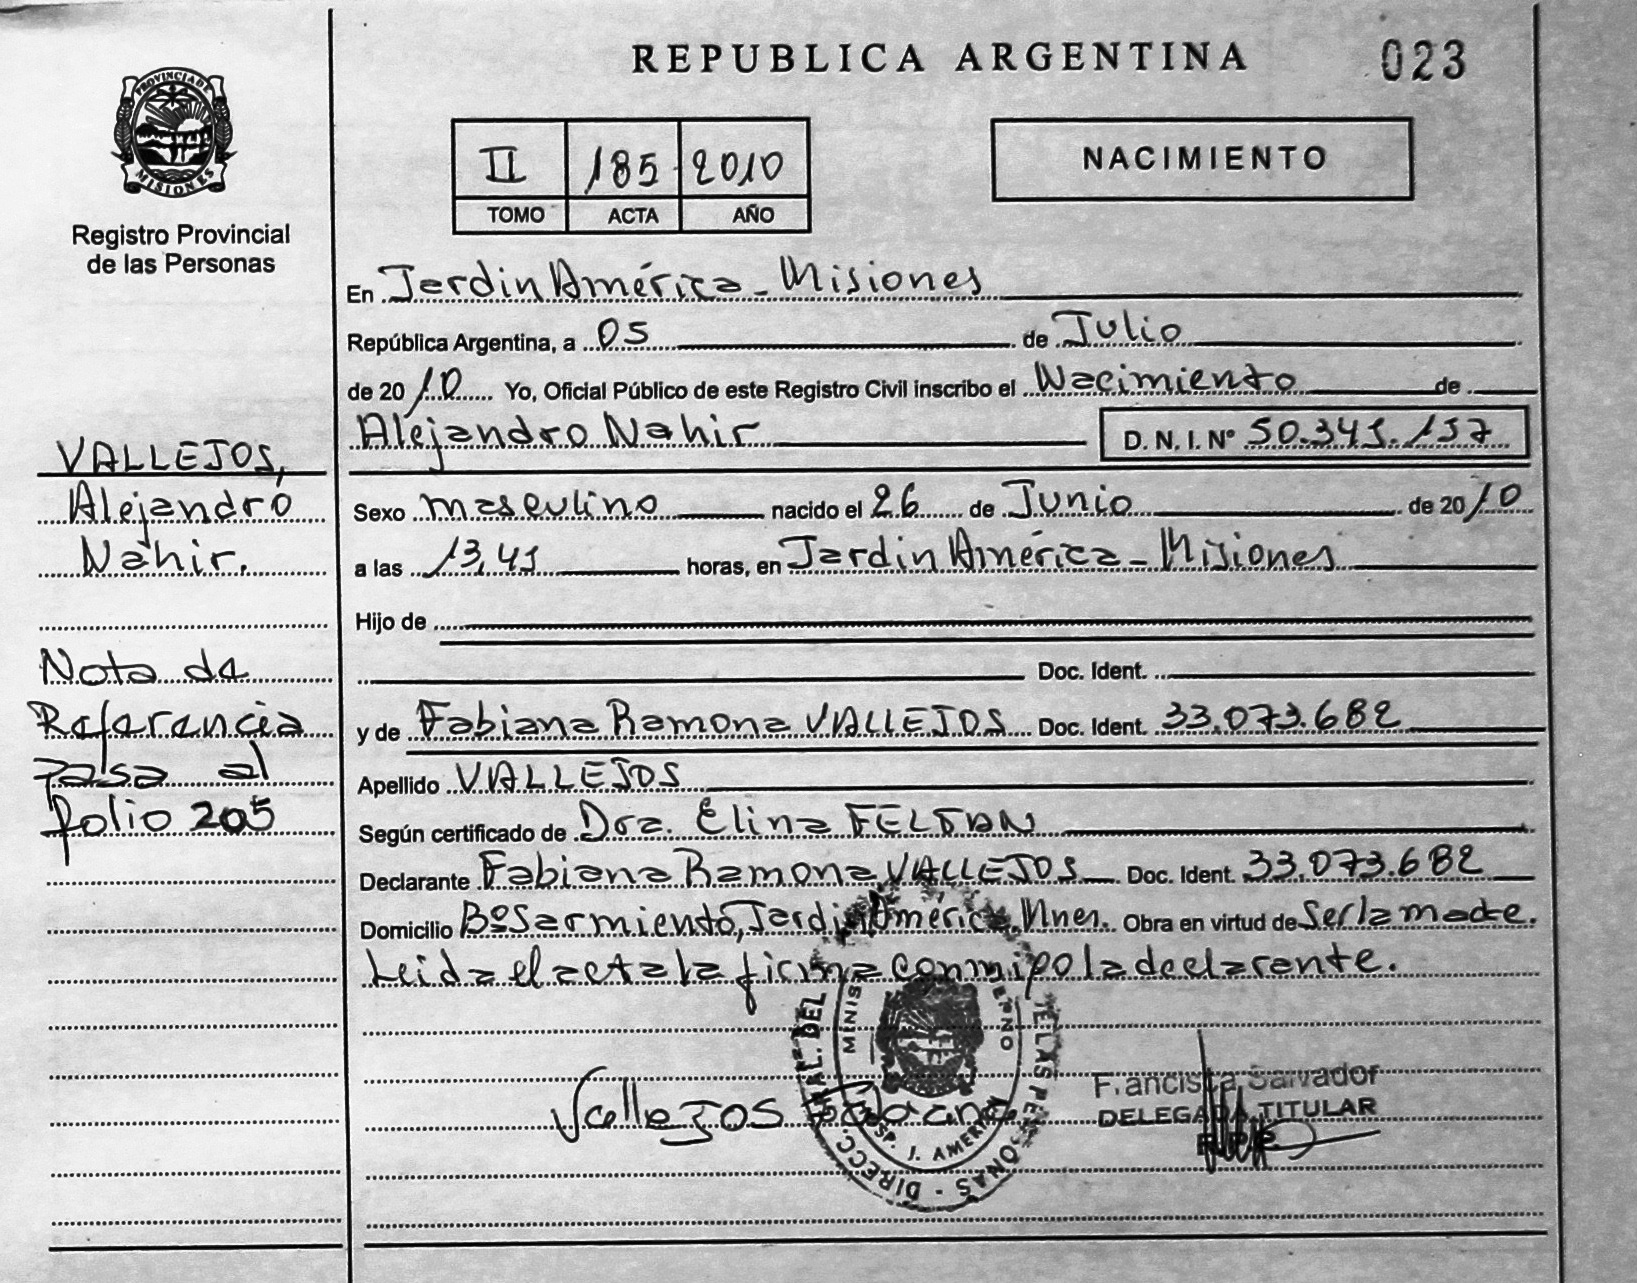 REPUBLICA ARGENTINA
023
PROVINCIA DE
MISIONES
Registro Provincial
de las Personas
II 185 2010
TOMO ACTA AÑO
NACIMIENTO
En Jardin América - Misiones
República Argentina, a 05 de Julio
de 2010 Yo, Oficial Público de este Registro Civil inscribo el Nacimiento de
Alejandro Nahir D. N. I. Nº 50.341.137
Sexo masculino nacido el 26 de Junio de 2010
a las 13,41 horas, en Jardin América - Misiones
Hijo de
Doc. Ident.
y de Fabiana Ramona VALLEJOS Doc. Ident. 33.073.682
Apellido VALLEJOS
Según certificado de Dra. Elina FELTAN
Declarante Fabiana Ramona VALLEJOS Doc. Ident. 33.073.682
Domicilio Bº Sarmiento, Jardin América, Mnes. Obra en virtud de Ser la madre.
Leida el acta la firma conmipo la declarante.
VALLEJOS,
Alejandro
Nahir.
Nota de
Referencia
pasa al
folio 205
Vallejos Fabiana
Francisca Salvador
DELEGADA TITULAR
DIRECC. GRAL. DEL
DE LAS PERSONAS
J. AMERICA